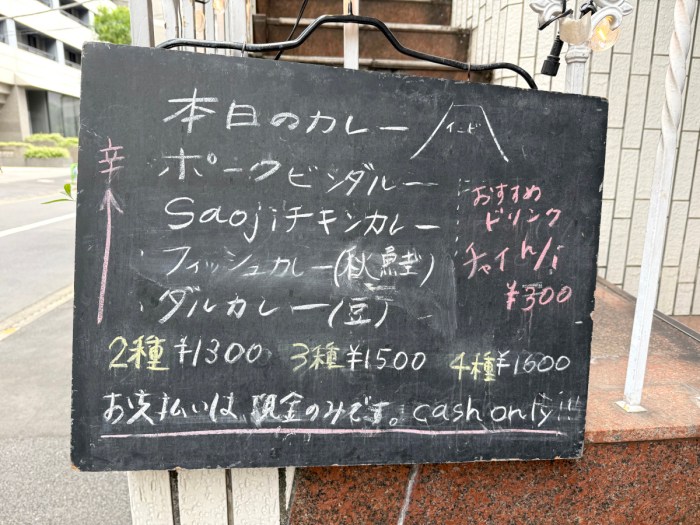 本日のカレー
辛
ポークビンダルー
Saojiチキンカレー
フィッシュカレー(秋鮭)
ダルカレー(豆)
おすすめ
ドリンク
チャイ
¥300
2種¥1300 3種¥1500 4種¥1600
お支払いは 現金のみです。cash only!!!